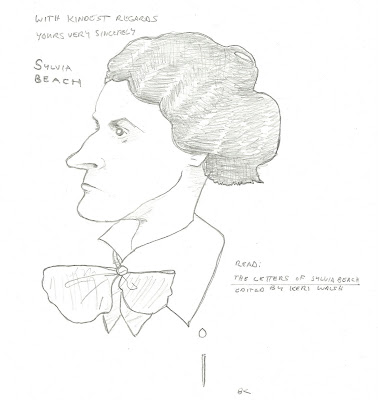 WITH KINDEST REGARDS
YOURS VERY SINCERELY
SYLVIA
BEACH
READ:
THE LETTERS OF SYLVIA BEACH
EDITED BY KERI WALSH
BK